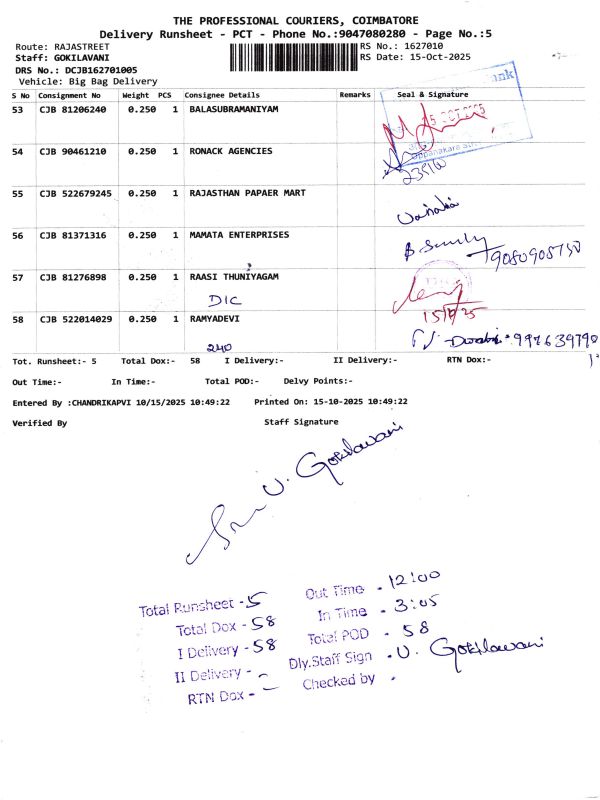 THE PROFESSIONAL COURIERS, COIMBATORE
Delivery Runsheet - PCT - Phone No.:9047080280 - Page No.:5
Route: RAJASTREET RS No.: 1627010
Staff: GOKILAVANI RS Date: 15-Oct-2025
DRS No.: DCJB162701005
Vehicle: Big Bag Delivery
S No Consignment No Weight PCS Consignee Details Remarks Seal & Signature
53 CJB 81206240 0.250 1 BALASUBRAMANIYAM
54 CJB 90461210 0.250 1 RONACK AGENCIES
55 CJB 522679245 0.250 1 RAJASTHAN PAPAER MART
56 CJB 81371316 0.250 1 MAMATA ENTERPRISES
9080908730
57 CJB 81276898 0.250 1 RAASI THUNIYAGAM
DIC
58 CJB 522014029 0.250 1 RAMYADEVI
240
Tot. Runsheet:- 5 Total Dox:- 58 I Delivery:- II Delivery:- RTN Dox:-
Out Time:- In Time:- Total POD:- Delvy Points:-
Entered By :CHANDRIKAPVI 10/15/2025 10:49:22 Printed On: 15-10-2025 10:49:22
Verified By Staff Signature
U. Gokilavani
Total Runsheet - 5 Out Time - 12:00
Total Dox - 58 In Time - 3:05
I Delivery - 58 Total POD - 58
II Delivery - Dly.Staff Sign - U. Gokilavani
RTN Dox - Checked by -